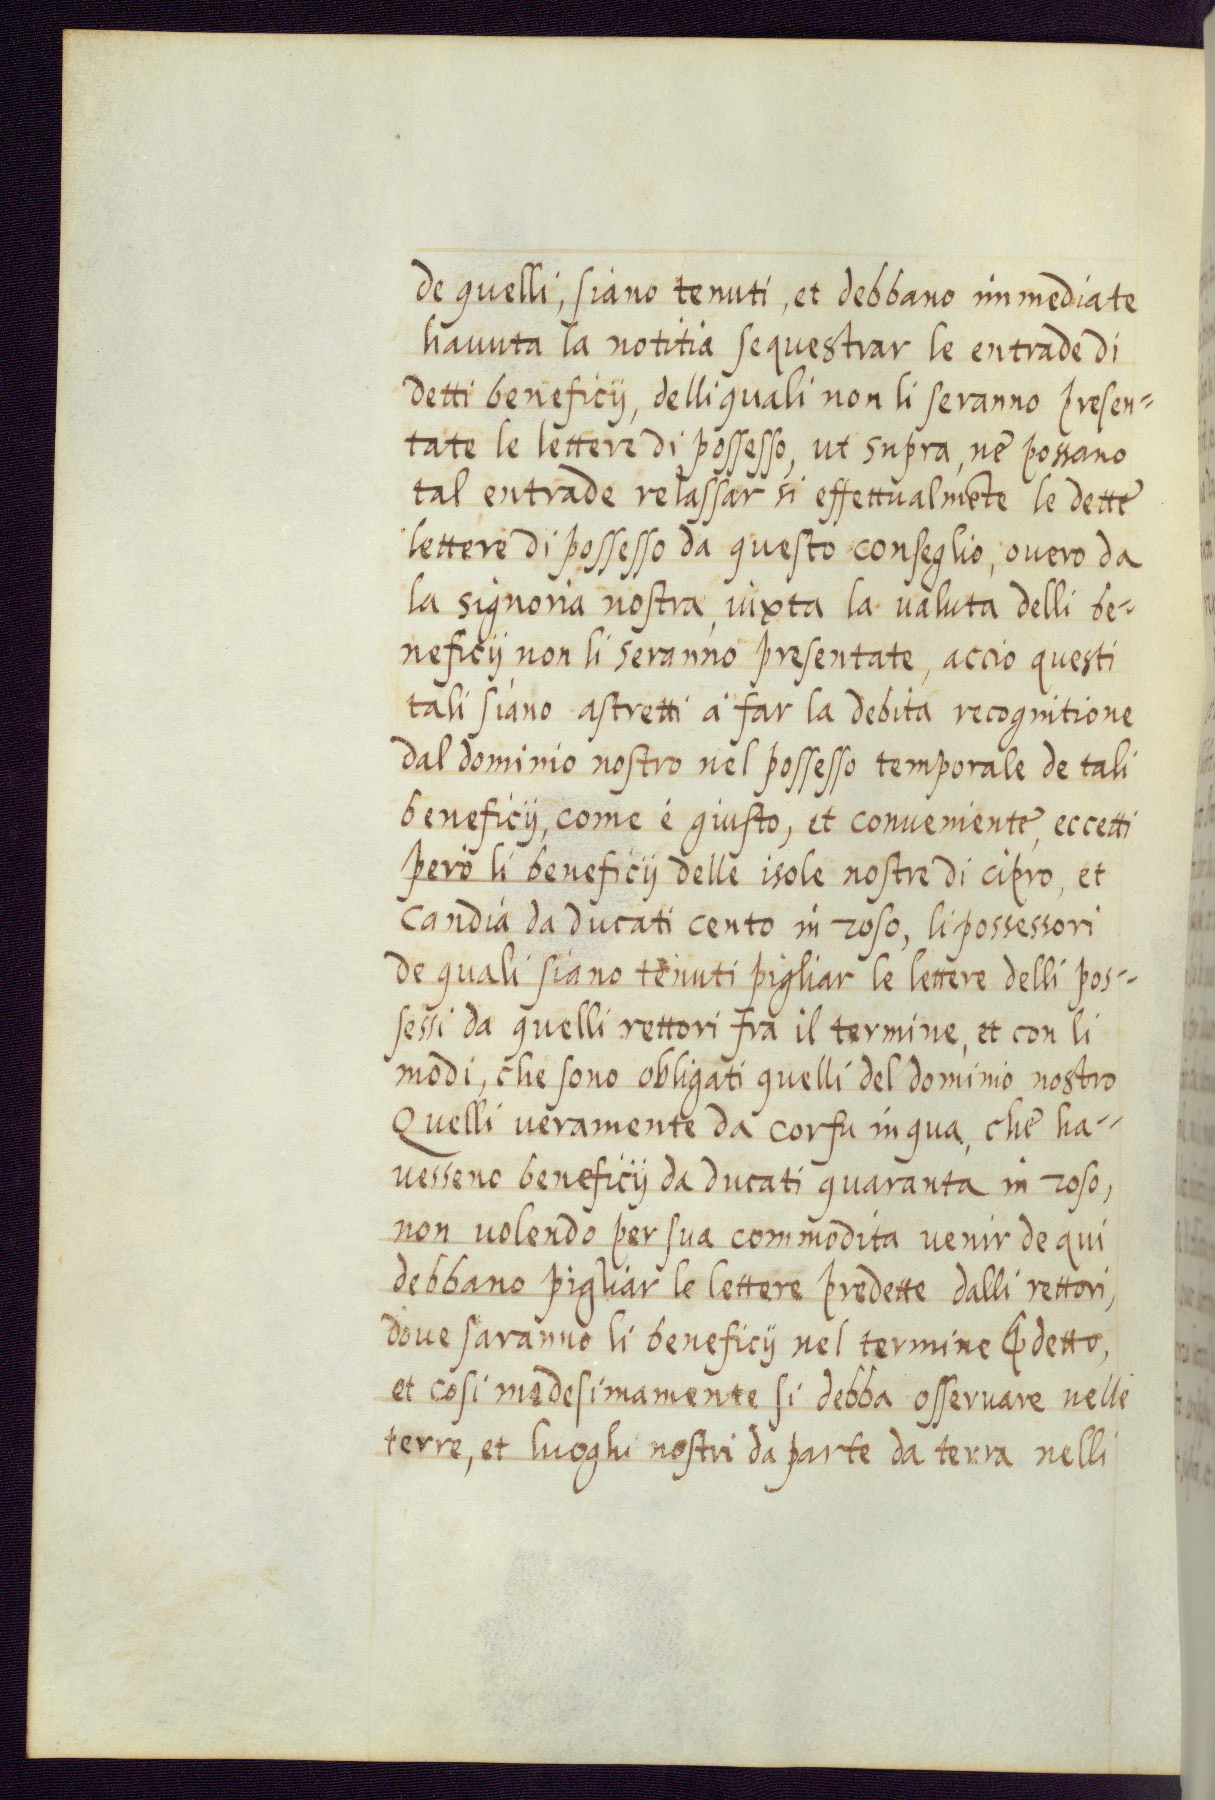 de quelli, siano tenuti, et debbano immediate
havuta la notitia sequestrar le entrade di
detti beneficij, delli quali non li seranno presen=
tate le lettere di possesso, ut supra, ne possano
tal entrade relassar si effettualmẽte le dette
lettere di possesso da questo conseglio, overo da
la signoria nostra, iuxta la valuta delli be=
neficij non li seranno presentate, accio questi
tali siano astretti à far la debita recognitione
dal dominio nostro nel possesso temporale de tali
beneficij, come é giusto, et conveniente, eccetti
però li beneficij delle isole nostre di cipro, et
Candia da ducati cento in zoso, li possessori
de quali siano tenuti pigliar le lettere delli pos=
sessi da quelli rettori fra il termine, et con li
modi, che sono obligati quelli del dominio nostro
Quelli veramente da corfu in qua, che ha=
vesseno beneficij da ducati quaranta in zoso,
non volendo per sua commodita venir de qui
debbano pigliar le lettere predette dalli rettori,
dove saranno li beneficij nel termine p̃detto,
et cosi medesimamente si debba osservare nelle
terre, et luoghi nostri da parte da terra nelli